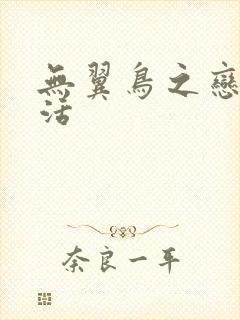 無翼鳥之戀
活
奈良一平